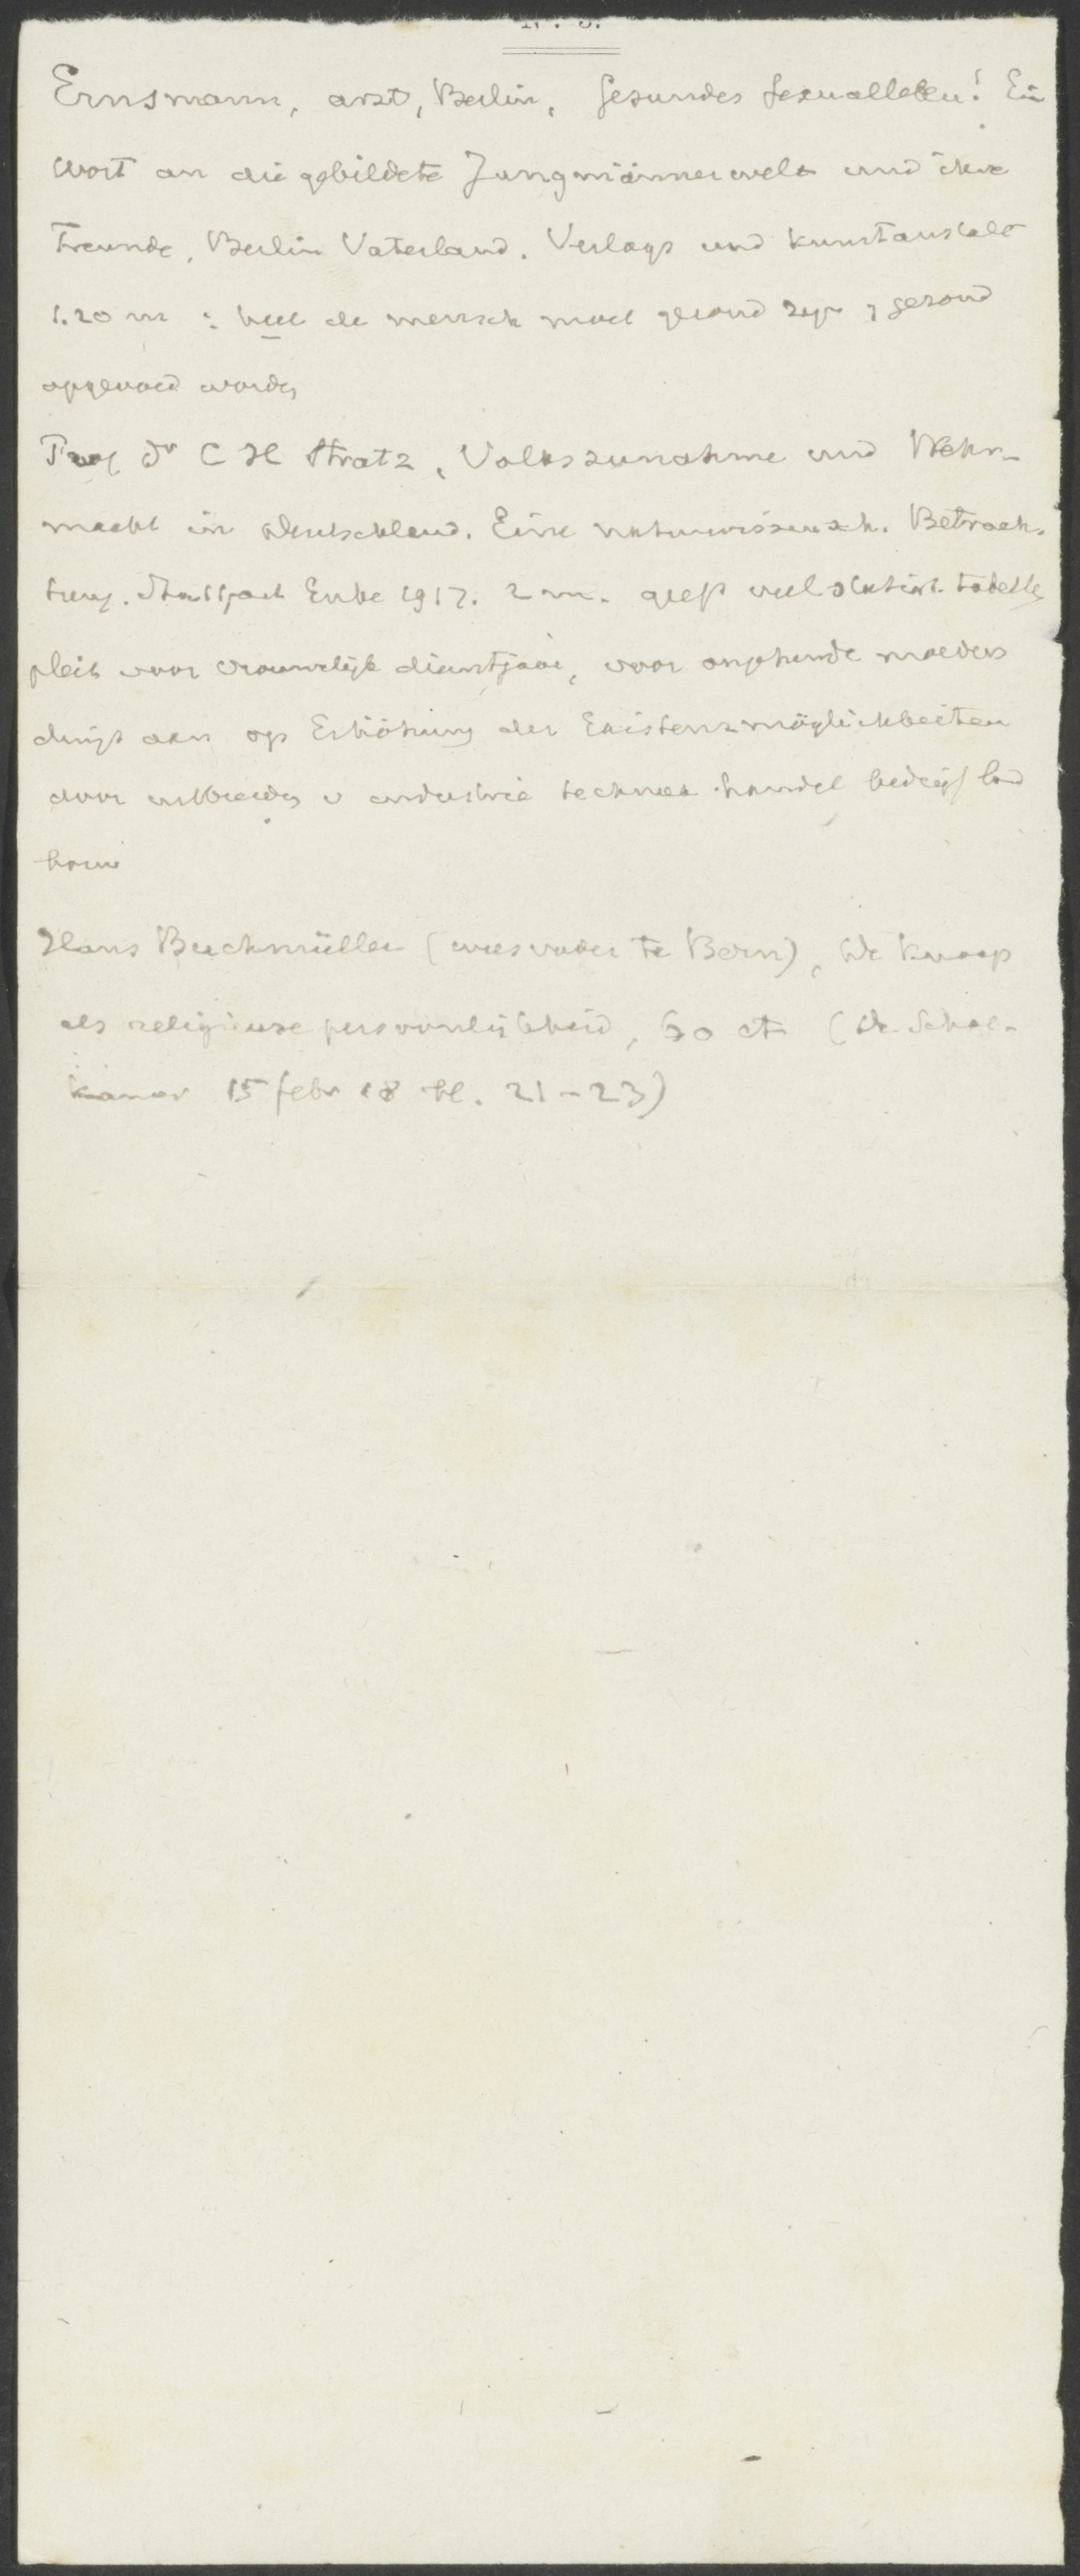 Ernsmann, arzt, Berlin, Gesundes Sexualleben! Ein
Wort an die gebildete Jungmännerwelt und ihre
Freunde, Berlin Vaterland. Verlags und Kunstanstalt
1.20 m : heel de mensch moet gezond zijn gezond
opgevoed worden
Prof Dr C H Stratz, Volkszunahme und Wehr-
macht in Deutschland. Eine naturwissensch. Betrach-
tung. Stuttgart Enke 1917. 2 m. geeft veel statist. tabellen
pleit voor vrouwelijk dienstjaar, voor ongehuwde moeders
dringt aan op Erhöhung der Existenzmöglichkeiten
door uitbreidg v industrie techniek handel bedrijf land
bouw
Hans Buchmüller (weesvader te Bern), De Knaap
als religieuze persoonlijkheid, 60 ct (De School-
kamer 15 febr 18 bl. 21-23)